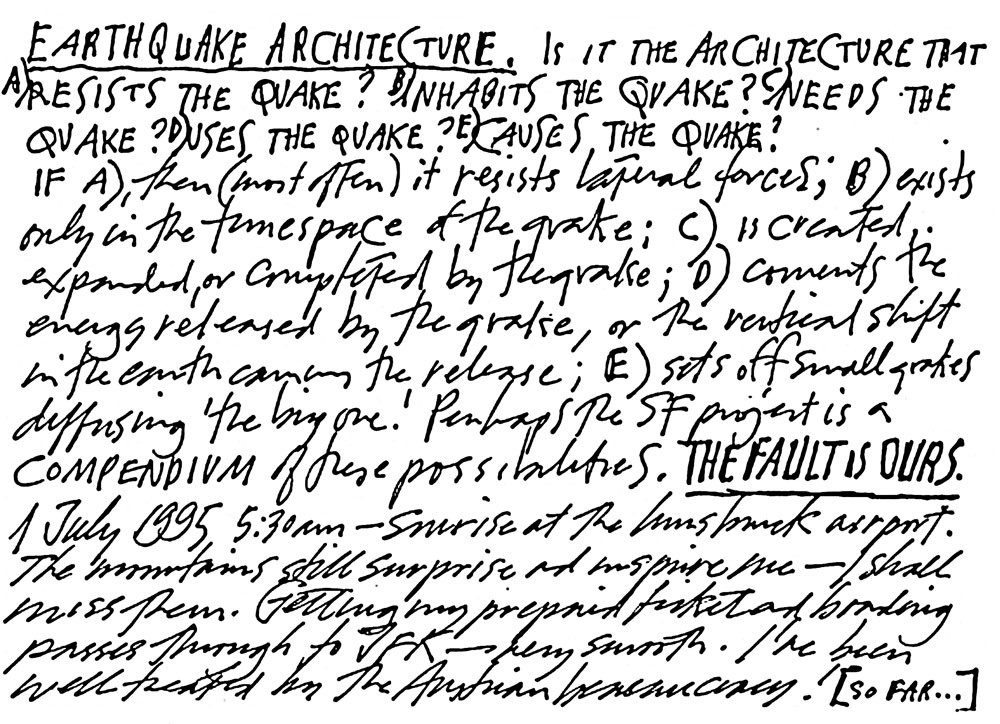 EARTHQUAKE ARCHITECTURE. IS IT THE ARCHITECTURE THAT
A) RESISTS THE QUAKE? B) INHABITS THE QUAKE? C) NEEDS THE
QUAKE? D) USES THE QUAKE? E) CAUSES THE QUAKE?
IF A), then (most often) it resists lateral forces; B) exists
only in the timespace of the quake; C) is created,
expanded, or completed by the quake; D) converts the
energy released by the quake, or the vertical shift
in the earth causing the release; E) sets off small quakes
diffusing 'the big one.' Perhaps the SF project is a
COMPENDIUM of these possibilities. THE FAULT IS OURS.
1 July 1995, 5:30am – Sunrise at the Innsbruck airport.
The mountains still surprise and inspire me – I shall
miss them. Getting my prepaid ticket and boarding
passes through to JFK – very smooth. I've been
well treated by the Austrian bureaucracy. [SO FAR...]